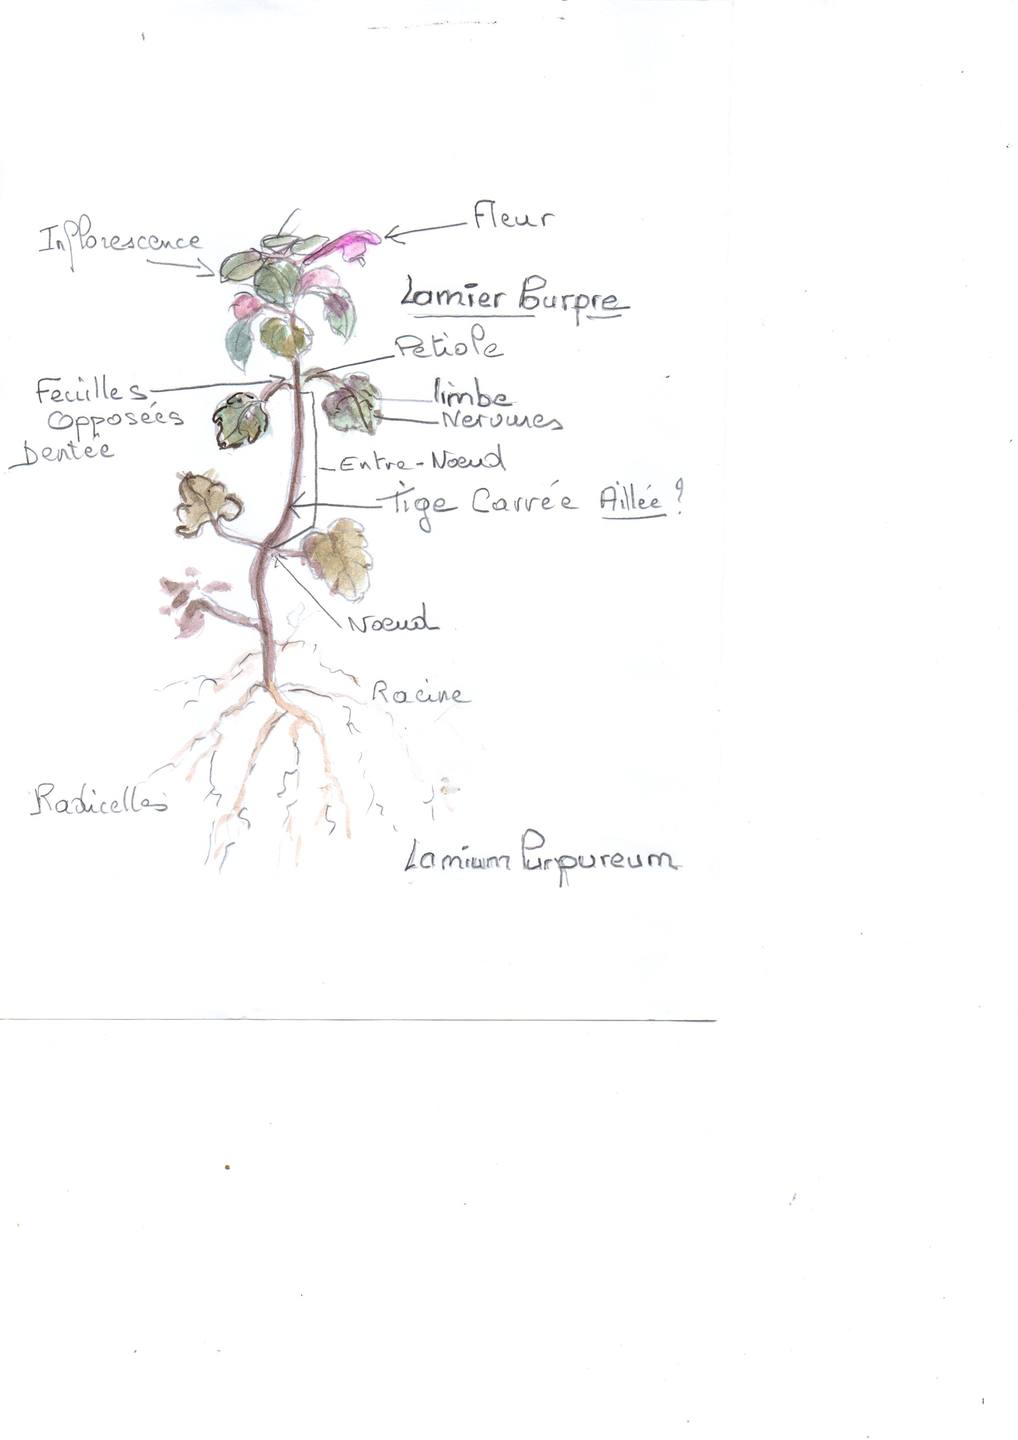 Fleur
Inflorescence
Lamier Purpre
Petiole
Feuilles
Opposées
Dentée
limbe
Nervures
Entre-Noeud
Tige Carrée Aillée ?
Noeud
Racine
Radicelles
Lamium Purpureum